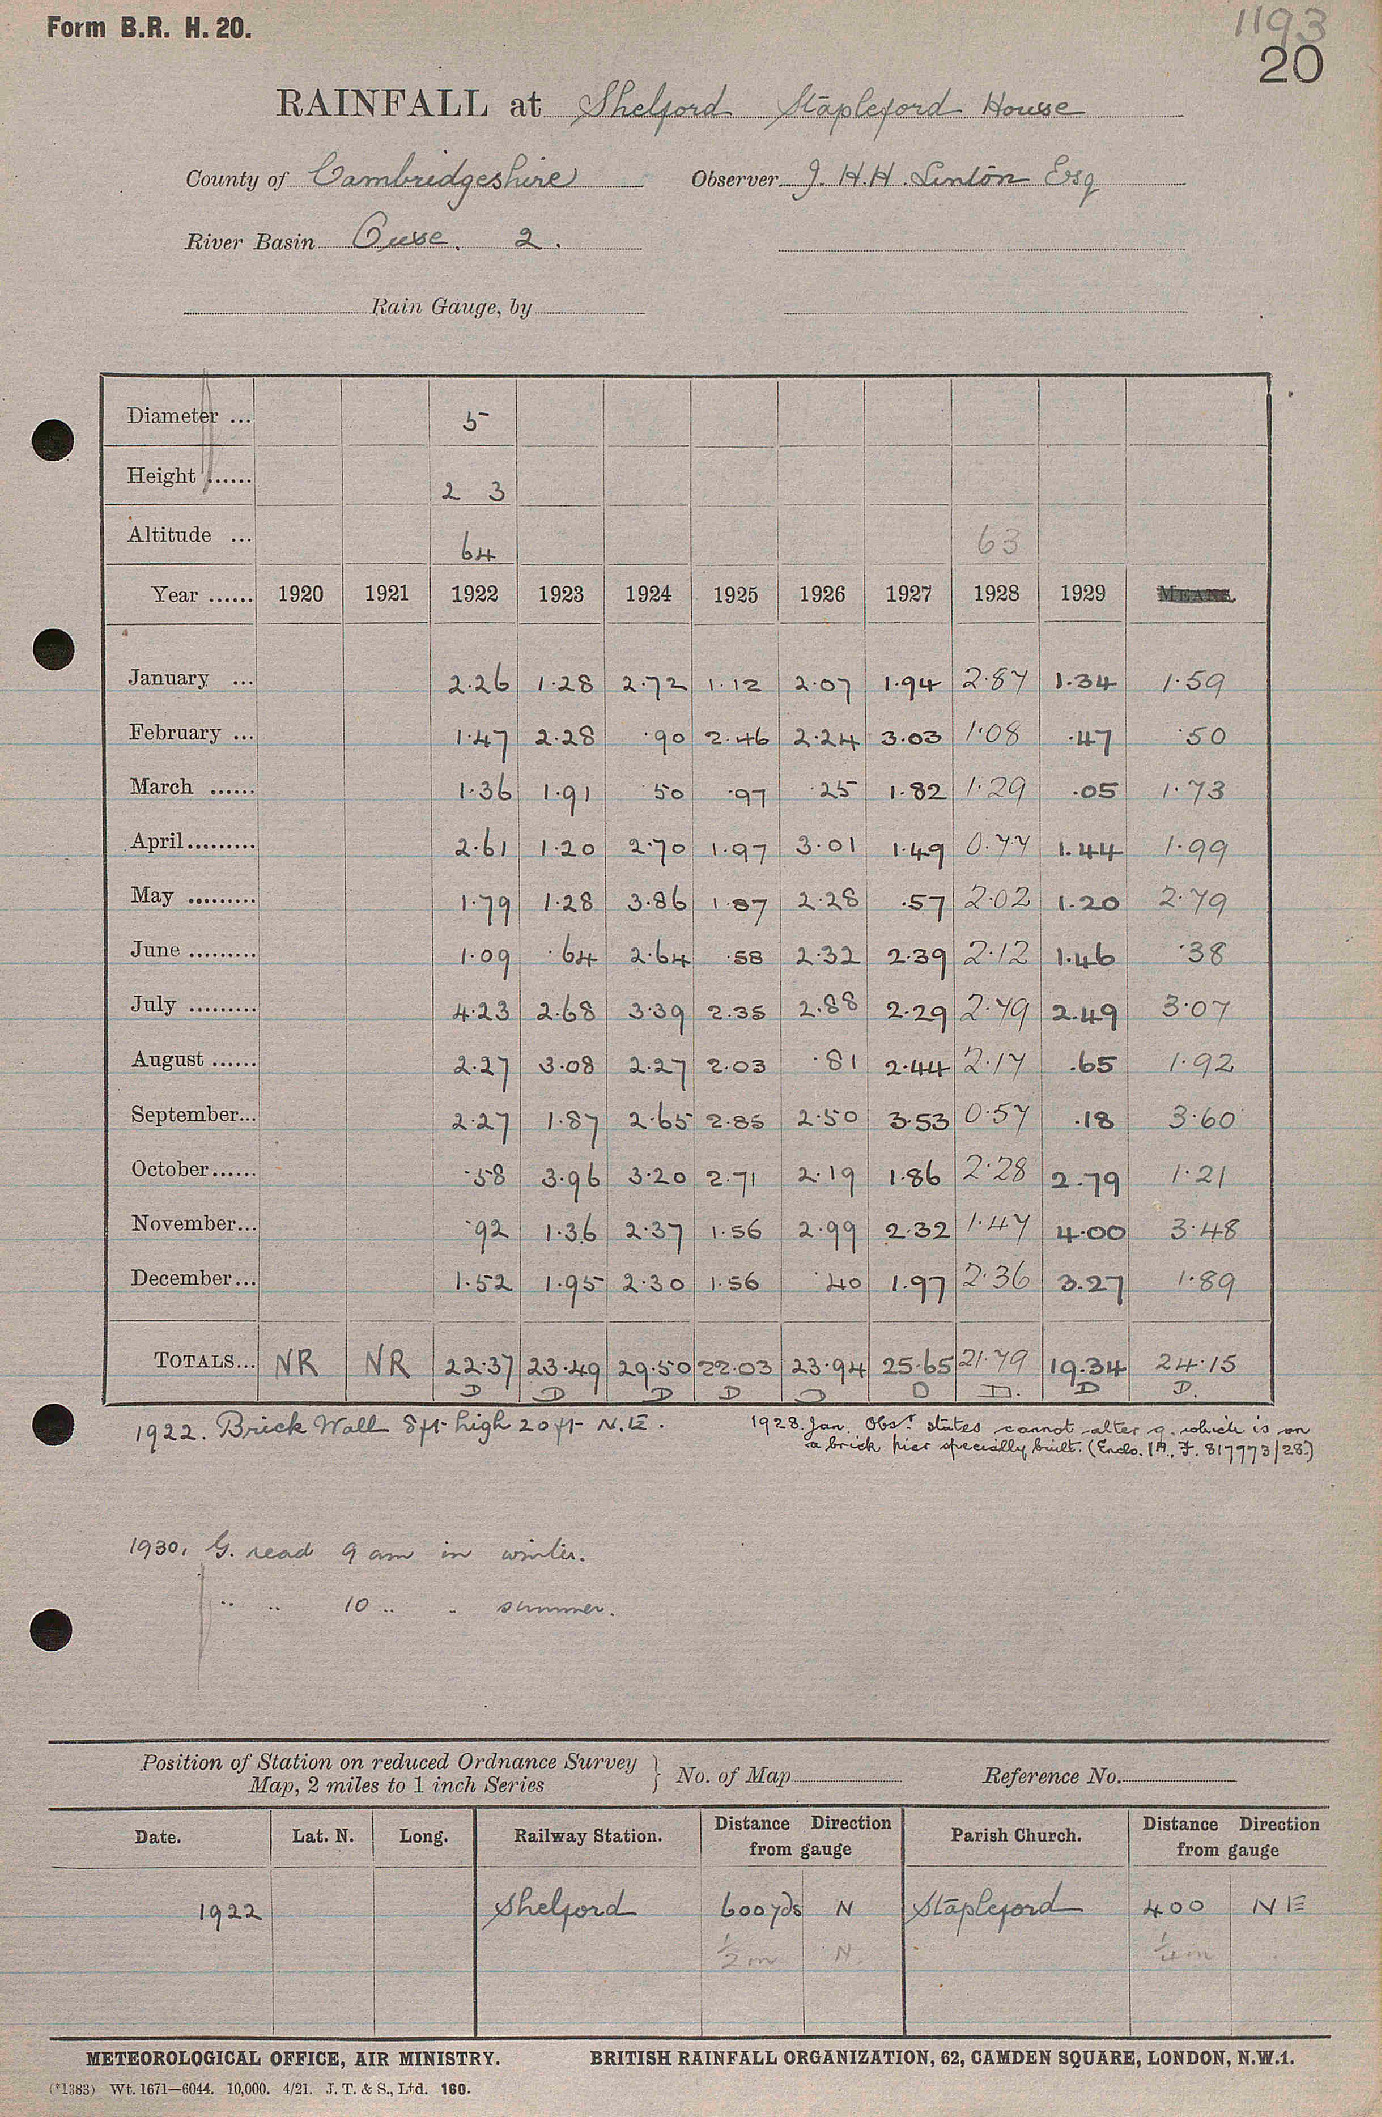 Form B.R. H. 20.
1193
20
RAINFALL at Shelford Stapleford House
County of Cambridgeshire Observer J. H. H. Linton Esq
River Basin Ouse. 2.
Rain Gauge, by
Diameter ... 5
Height ...... 2 3
Altitude ... 64 63
Year ...... 1920 1921 1922 1923 1924 1925 1926 1927 1928 1929 MEANS.
January ... 2.26 1.28 2.72 1.12 2.07 1.94 2.87 1.34 1.59
February ... 1.47 2.28 .90 2.46 2.24 3.03 1.08 .47 .50
March ...... 1.36 1.91 .50 .97 .25 1.82 1.29 .05 1.73
April ......... 2.61 1.20 2.70 1.97 3.01 1.49 0.77 1.44 1.99
May ......... 1.79 1.28 3.86 1.87 2.28 .57 2.02 1.20 2.79
June ......... 1.09 .64 2.64 .58 2.32 2.39 2.12 1.46 .38
July ......... 4.23 2.68 3.39 2.35 2.88 2.29 2.79 2.49 3.07
August ...... 2.27 3.08 2.27 2.03 .81 2.44 2.17 .65 1.92
September... 2.27 1.87 2.65 2.85 2.50 3.53 0.57 .18 3.60
October...... .58 3.96 3.20 2.71 2.19 1.86 2.28 2.79 1.21
November... .92 1.36 2.37 1.56 2.99 2.32 1.47 4.00 3.48
December... 1.52 1.95 2.30 1.56 .40 1.97 2.36 3.27 1.89
TOTALS... NR NR 22.37 23.49 29.50 22.03 23.94 25.65 21.79 19.34 24.15
D D D D D D D. D D.
1922. Brick Wall 8ft high 20ft N.E.
1928. Jan. Obsr. states cannot alter g. which is on
a brick pier specially built. (Enclo. 1A, F. 817973/28)
1930. G. read 9 am in winter.
" " 10 " " summer.
Position of Station on reduced Ordnance Survey
Map, 2 miles to 1 inch Series } No. of Map Reference No.
Date. Lat. N. Long. Railway Station. Distance Direction from gauge Parish Church. Distance Direction from gauge
1922 Shelford 600 yds N Stapleford 400 NE
½ m N. ¼ m
METEOROLOGICAL OFFICE, AIR MINISTRY. BRITISH RAINFALL ORGANIZATION, 62, CAMDEN SQUARE, LONDON, N.W.1.
(*1383) Wt. 1671—6044. 10,000. 4/21. J. T. & S., Ltd. 160.